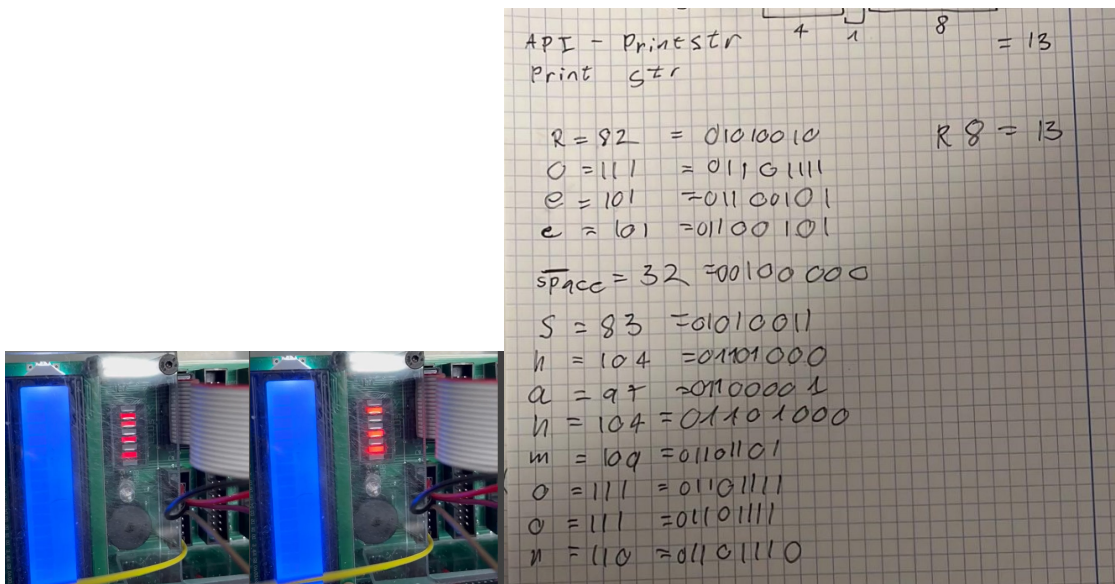 4 1 8
API - Printstr = 13
Print str
R = 82 = 01010010 R 8 = 13
O = 111 = 01101111
e = 101 =01100101
e = 101 =01100101
space = 32 =00100000
S = 83 =01010011
h = 104 =01101000
a = 97 =01100001
h = 104 =01101000
m = 109 =01101101
o = 111 =01101111
o = 111 =01101111
n = 110 =01101110